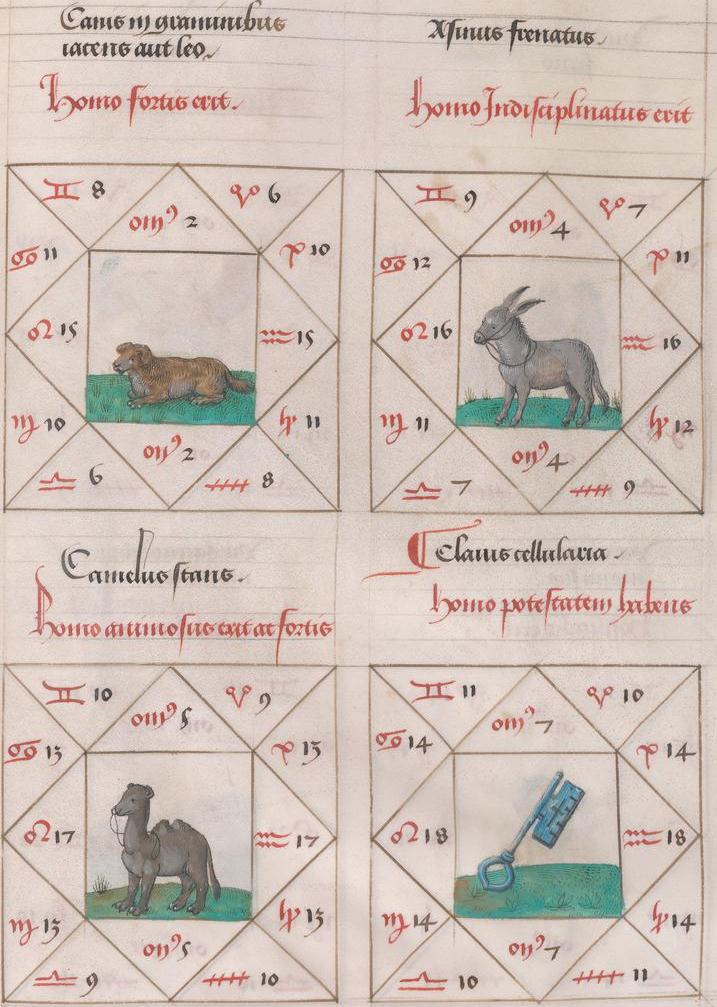 Canis in graminibus
iacens aut leo
Homo fortis erit.
♊ 8
♈ 6
2
♋ 11
10
♌ 15
♒ 15
♍ 10
♑ 11
2
♎ 6
8
Asinus frenatus
Homo Indisciplinatus erit
♊ 9
♈ 7
4
♋ 12
11
♌ 16
♒ 16
♍ 11
♑ 12
4
♎ 7
9
Camelus stans.
Homo animosus erit ac fortis
♊ 10
♈ 9
5
♋ 13
13
♌ 17
♒ 17
♍ 13
♑ 13
5
♎ 9
10
Clauis cellularia
homo potestatem habens
♊ 11
♈ 10
7
♋ 14
14
♌ 18
♒ 18
♍ 14
♑ 14
7
♎ 10
11